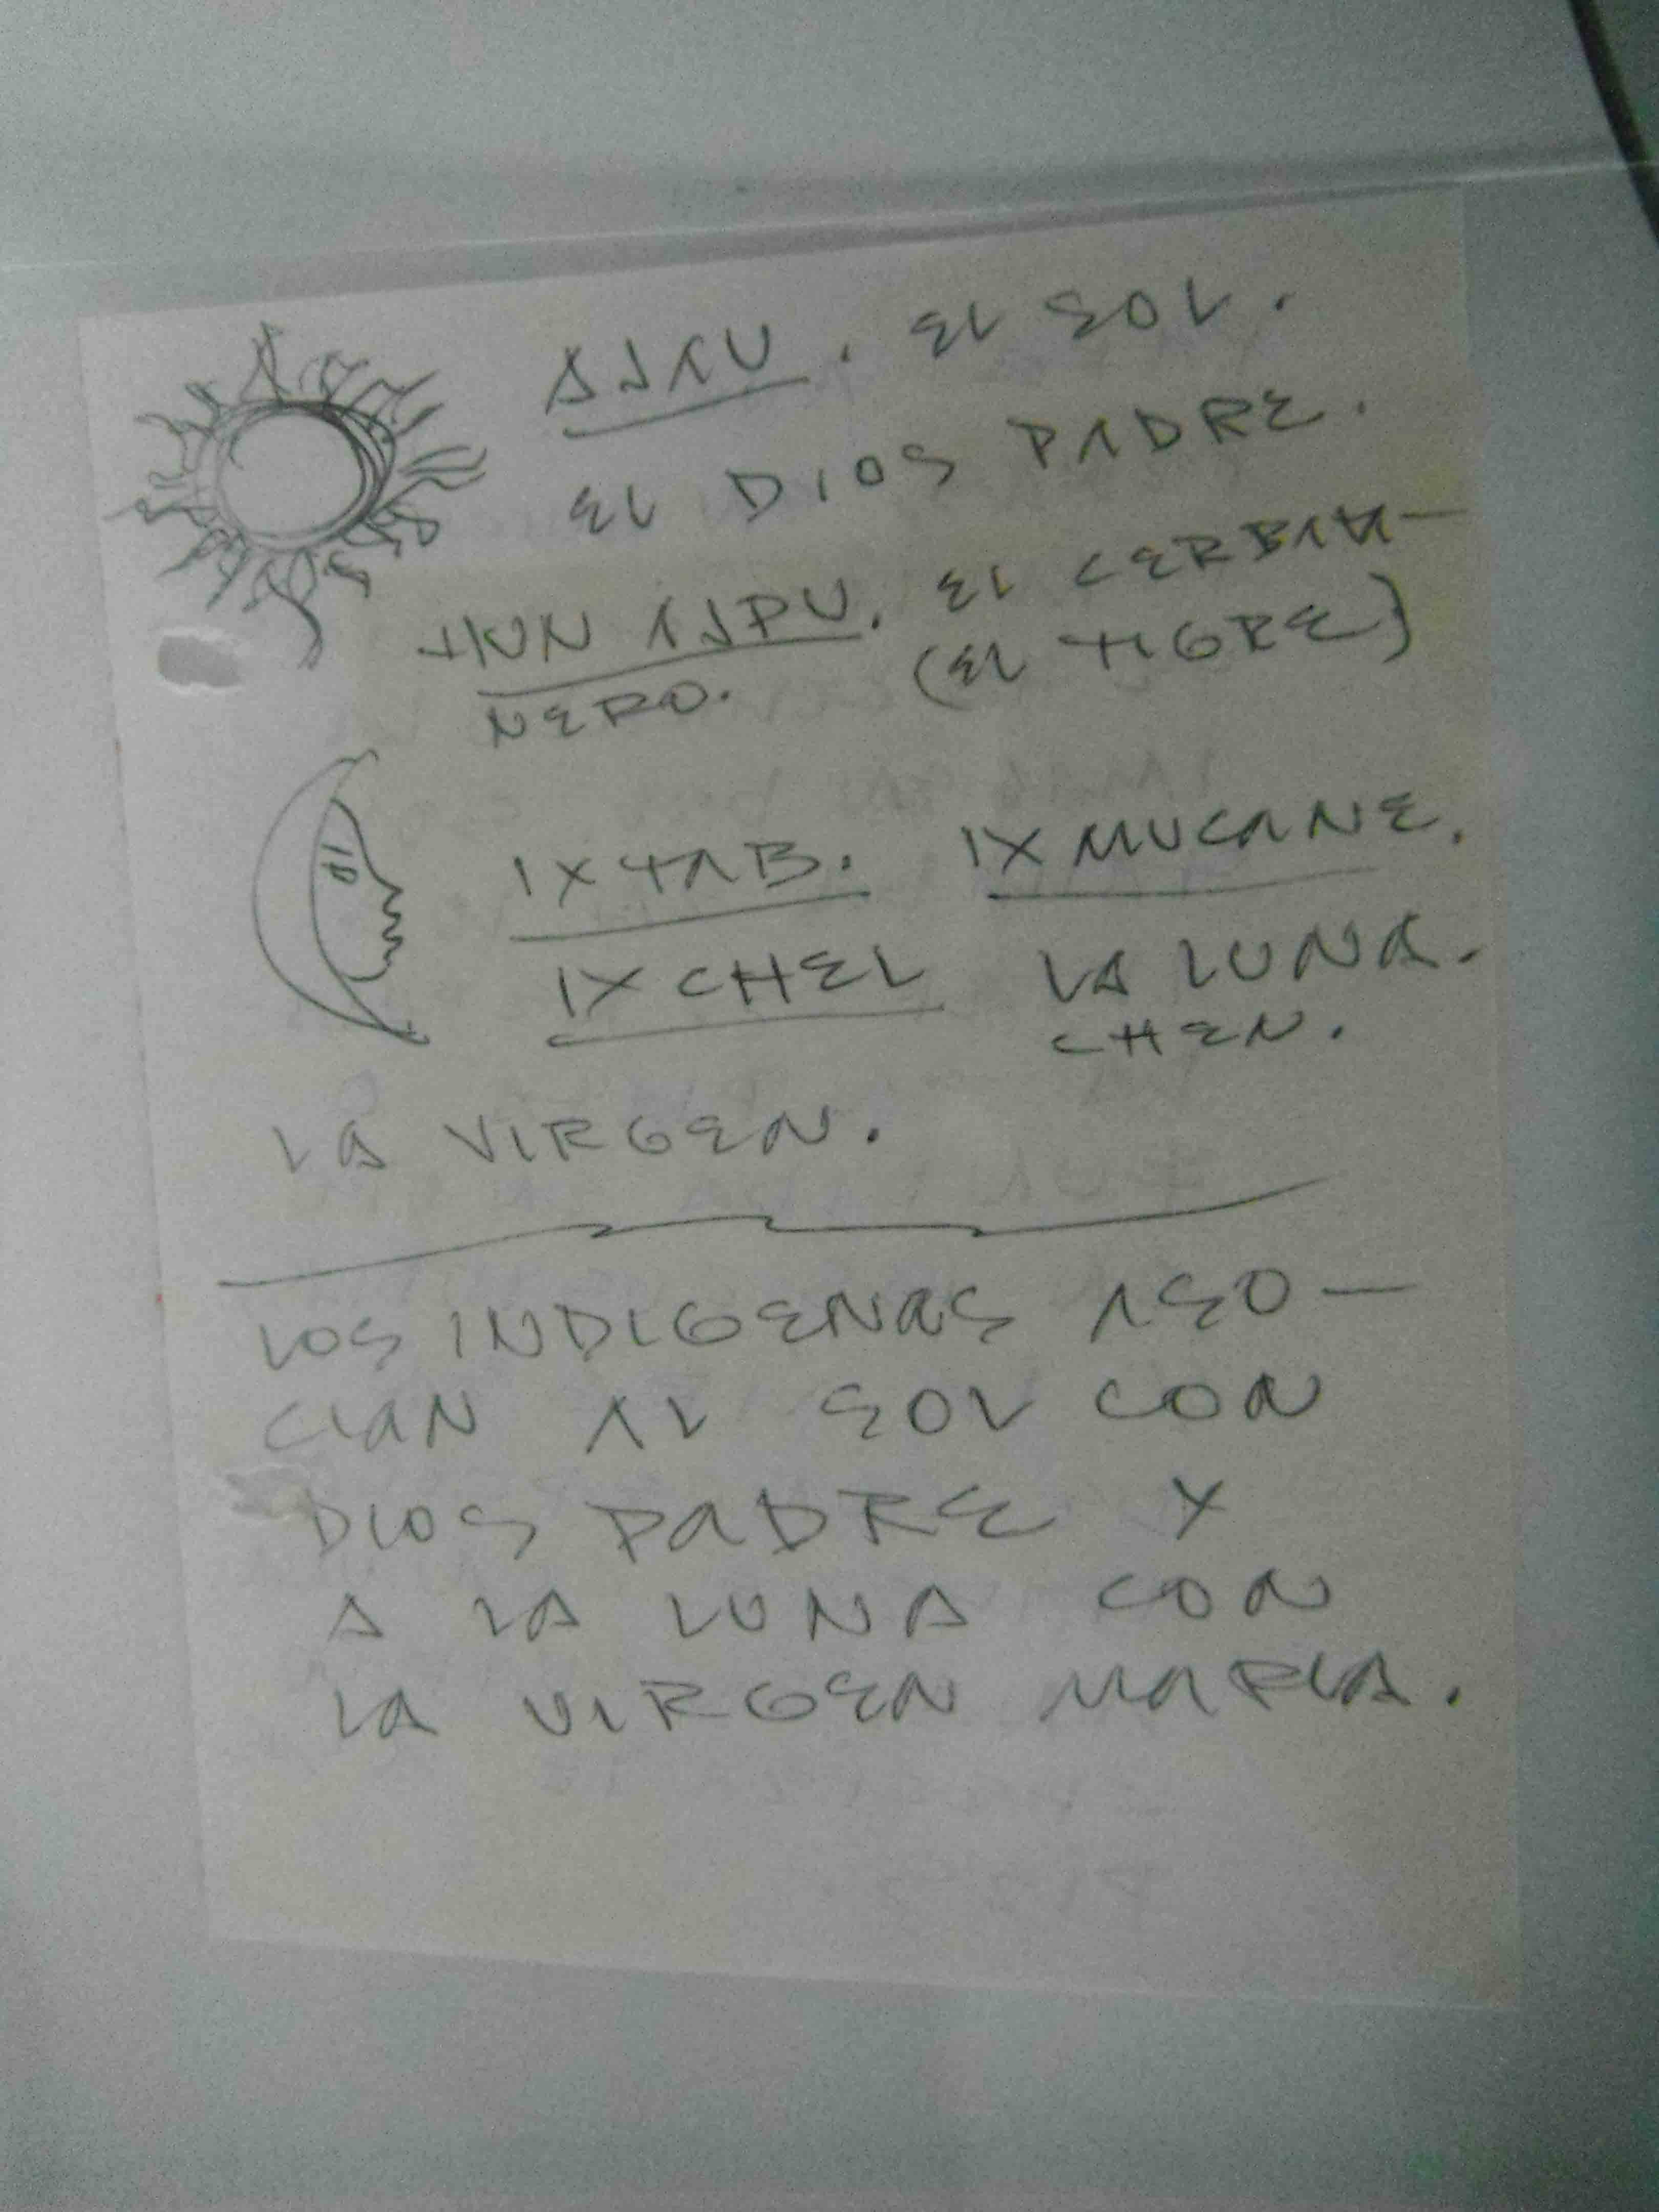 AJAU. EL SOL.
EL DIOS PADRE.
HUN AJPU. EL CERBATA-
NERO. (EL TIGRE)
IXTAB. IXMUCANE.
IXCHEL LA LUNA.
CHEN.
LA VIRGEN.
LOS INDIGENAS ASO-
CIAN AL SOL CON
DIOS PADRE Y
A LA LUNA CON
LA VIRGEN MARIA.